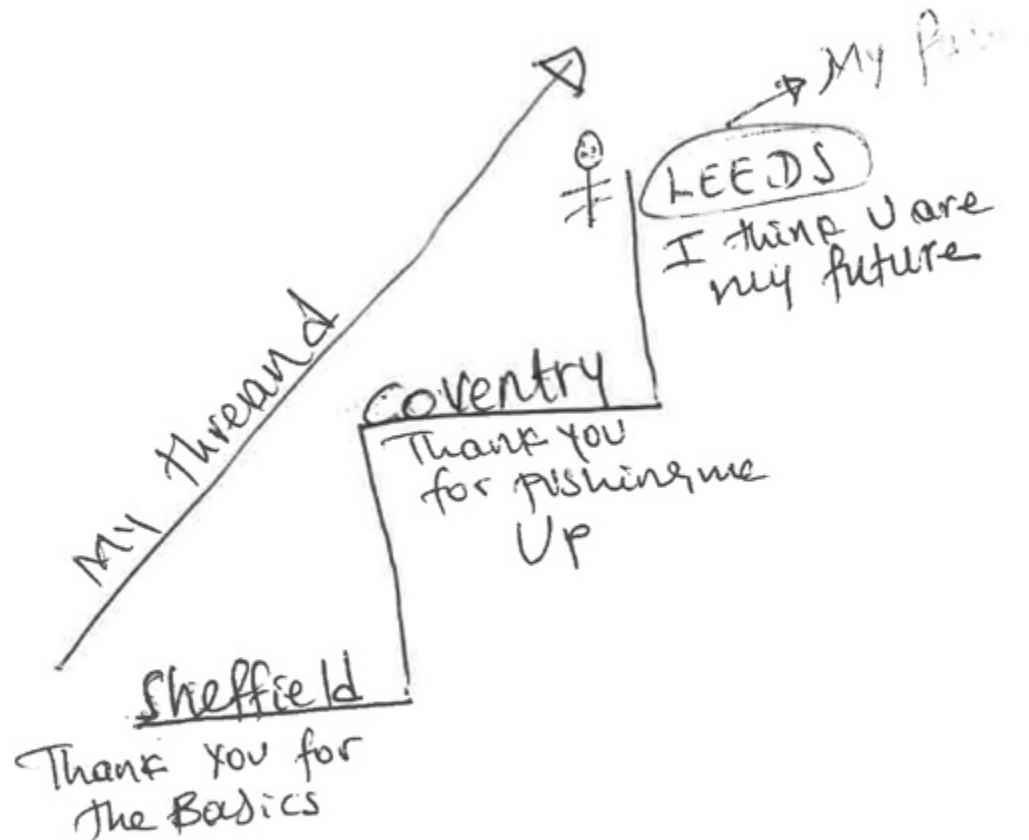 My
LEEDS
I think U are
my future
My threand
Coventry
Thank you
for pushing me
Up
Sheffield
Thank you for
the Basics